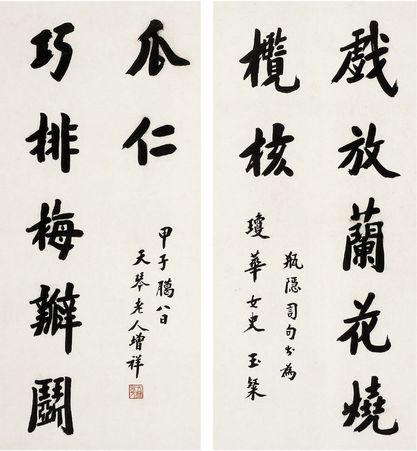 戲放蘭花燒
欖核
瓶隱司句书為
瓊華女史 玉粲
巧排梅瓣鬭
瓜仁
甲子臈八日
天琴老人增祥